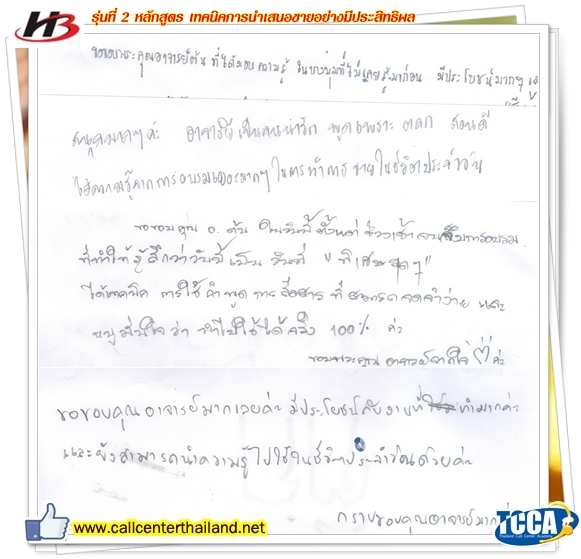 H3
รุ่นที่ 2 หลักสูตร เทคนิคการนำเสนอขายอย่างมีประสิทธิผล
ขอขอบพระคุณอาจารย์ต้น ที่ได้มอบความรู้ ในบางมุมที่ไม่เคยรู้มาก่อน มีประโยชน์มากๆ
สนุกมากๆ ค่ะ อาจารย์เป็นคนน่ารัก พูดเพราะ ตลก สอนดี
ได้ความรู้จากการอบรมเยอะมากๆ ในการทำการขายในชีวิตประจำวัน
ขอขอบคุณ อ. ต้น ในวันนี้ ตั้งแต่ช่วงเช้าจนถึงการอบรม
ที่ทำให้รู้สึกว่าวันนี้เป็นวันที่ "พิเศษสุดๆ"
ได้เทคนิค การใช้คำพูด การสื่อสาร ที่สามารถจดจำง่าย และ
หนูมั่นใจว่า นำไปใช้ได้จริง 100% ค่ะ
ขอบพระคุณ อาจารย์จากใจ ค่ะ
ขอขอบคุณอาจารย์มากเลยค่ะ มีประโยชน์กับงานที่ทำมากค่ะ
และยังสามารถนำความรู้ไปใช้ในชีวิตประจำวันด้วยค่ะ
กราบขอบคุณอาจารย์มาก
www.callcenterthailand.net
TCCA
Thailand Call Center Academy